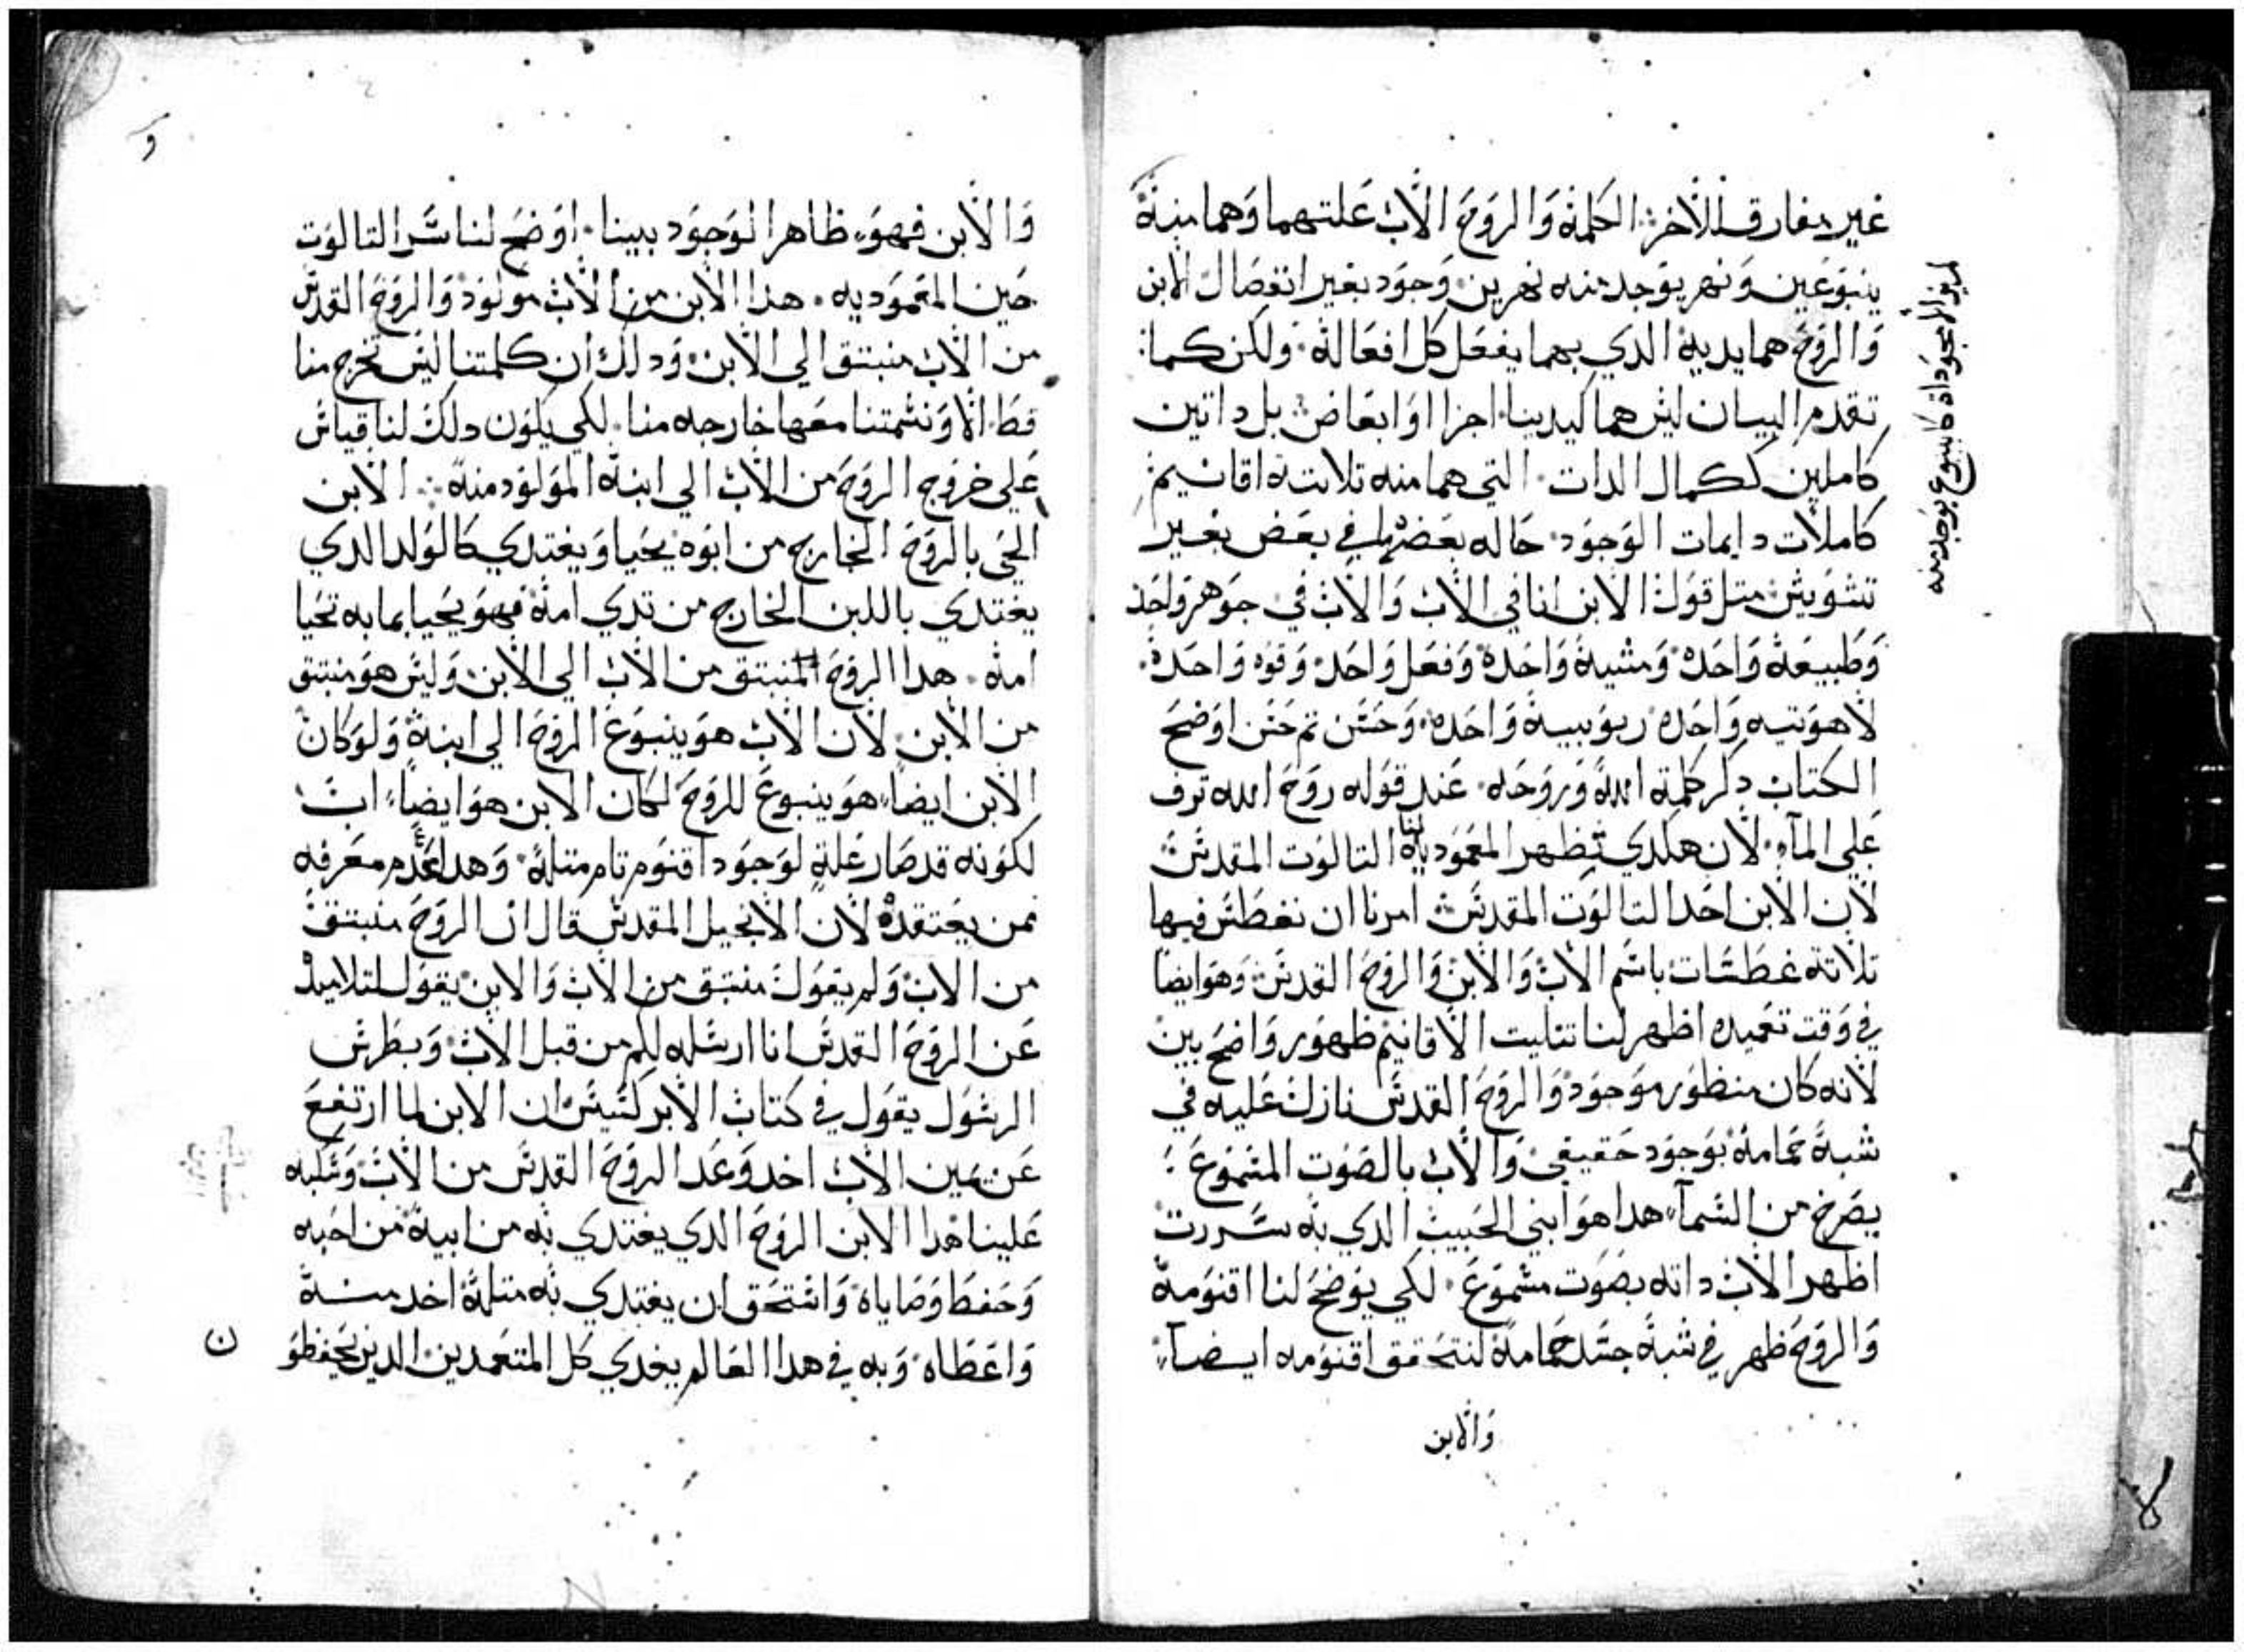 غير مفارق للاخر الكلمة والروح الاب علتهما وهما منه
ينبوعين ونهر يوجد منه نهرين وجود بغير انفصال الابن
والروح هما يديه الدي بهما يفعل كل افعاله ولكن كما
تقدم البيان ليس هما كيدينا اجزا او ابعاض بل داتين
كاملين لكمال الدات التي هما منه تلاتة اقانيم
كاملات دايمات الوجود حاله بعضها في بعض بغير
تشويش متل قول الابن انا في الاب والاب في جوهر واحد
وطبيعة واحده ومشية واحدة وفعل واحد وقوه واحدة
لاهوتيه واحده ربوبيية واحده وحسن تم حسن اوضح
الكتاب دكر كلمة الله وروحه عند قوله روح الله ترف
علي المآء لان هكدي تظهر لنا المعموديه التالوت المقدس
لان الابن احد التالوت المقدس امرنا ان نغطس فيها
تلاتة غطسات باسم الاب والابن والروح القدس وهو ايضا
في وقت تعميده اظهر لنا تتليت الاقانيم ظهور واضح بين
لانه كان منظور موجود والروح القدس نازل عليه في
شبة حمامة بوجود حقيقي والاب بالصوت المسموع
يصرخ من السمآء هدا هو ابني الحبيب الدي به سررت
اظهر الاب داته بصوت مسموع لكي يوضح لنا اقنومة
والروح ظهر في شبة جسد حمامة لنتحقق اقنومه ايضآ
والابن
كينبوع يوجد منه
و
والابن فهو ظاهر الوجود بيننا اوضح لنا سر التالوت
حين المعموديه هدا الابن من الاب مولود والروح القدس
من الاب منبتق الي الابن ودلك ان كلمتنا ليس تخرج منا
قط الا ونسمتنا معها خارجه منا لكي يكون دلك لنا قياس
علي خروج الروح من الاب الي ابنه المولود منه الابن
الحي بالروح الخارج من ابوه يحيا ويغتدي كالولد الدي
يغتدي باللبن الخارج من تدي امه فهو يحيا بما به تحيا
امه هدا الروح المنبتق من الاب الي الابن وليس هو منبتق
من الابن لان الاب هو ينبوع الروح الي ابنة ولو كان
الابن ايضاً هو ينبوع للروح لكان الابن هو ايضاً اب
لكونه قد صار علة لوجود اقنوم تام متله وهدا عدم معرفه
ممن يعتقده لان الانجيل المقدس قال ان الروح منبتق
من الاب ولم يقول منبتق من الاب والابن يقول لتلاميد
عن الروح القدس انا ارسله لكم من قبل الاب وبطرس
الرسول يقول في كتاب الابركسيس ان الابن لما ارتفع
عن يمين الاب اخد وعد الروح القدس من الاب وسكبه
علينا هدا الابن الروح الدي يغتدي به من ابية من احبه
وحفظ وصاياه واستحق ان يغتدي به متلة اخد منه
واعطاه وبه في هدا العالم يغدي كل المتعمدين الدين يحفظو
ن
لا